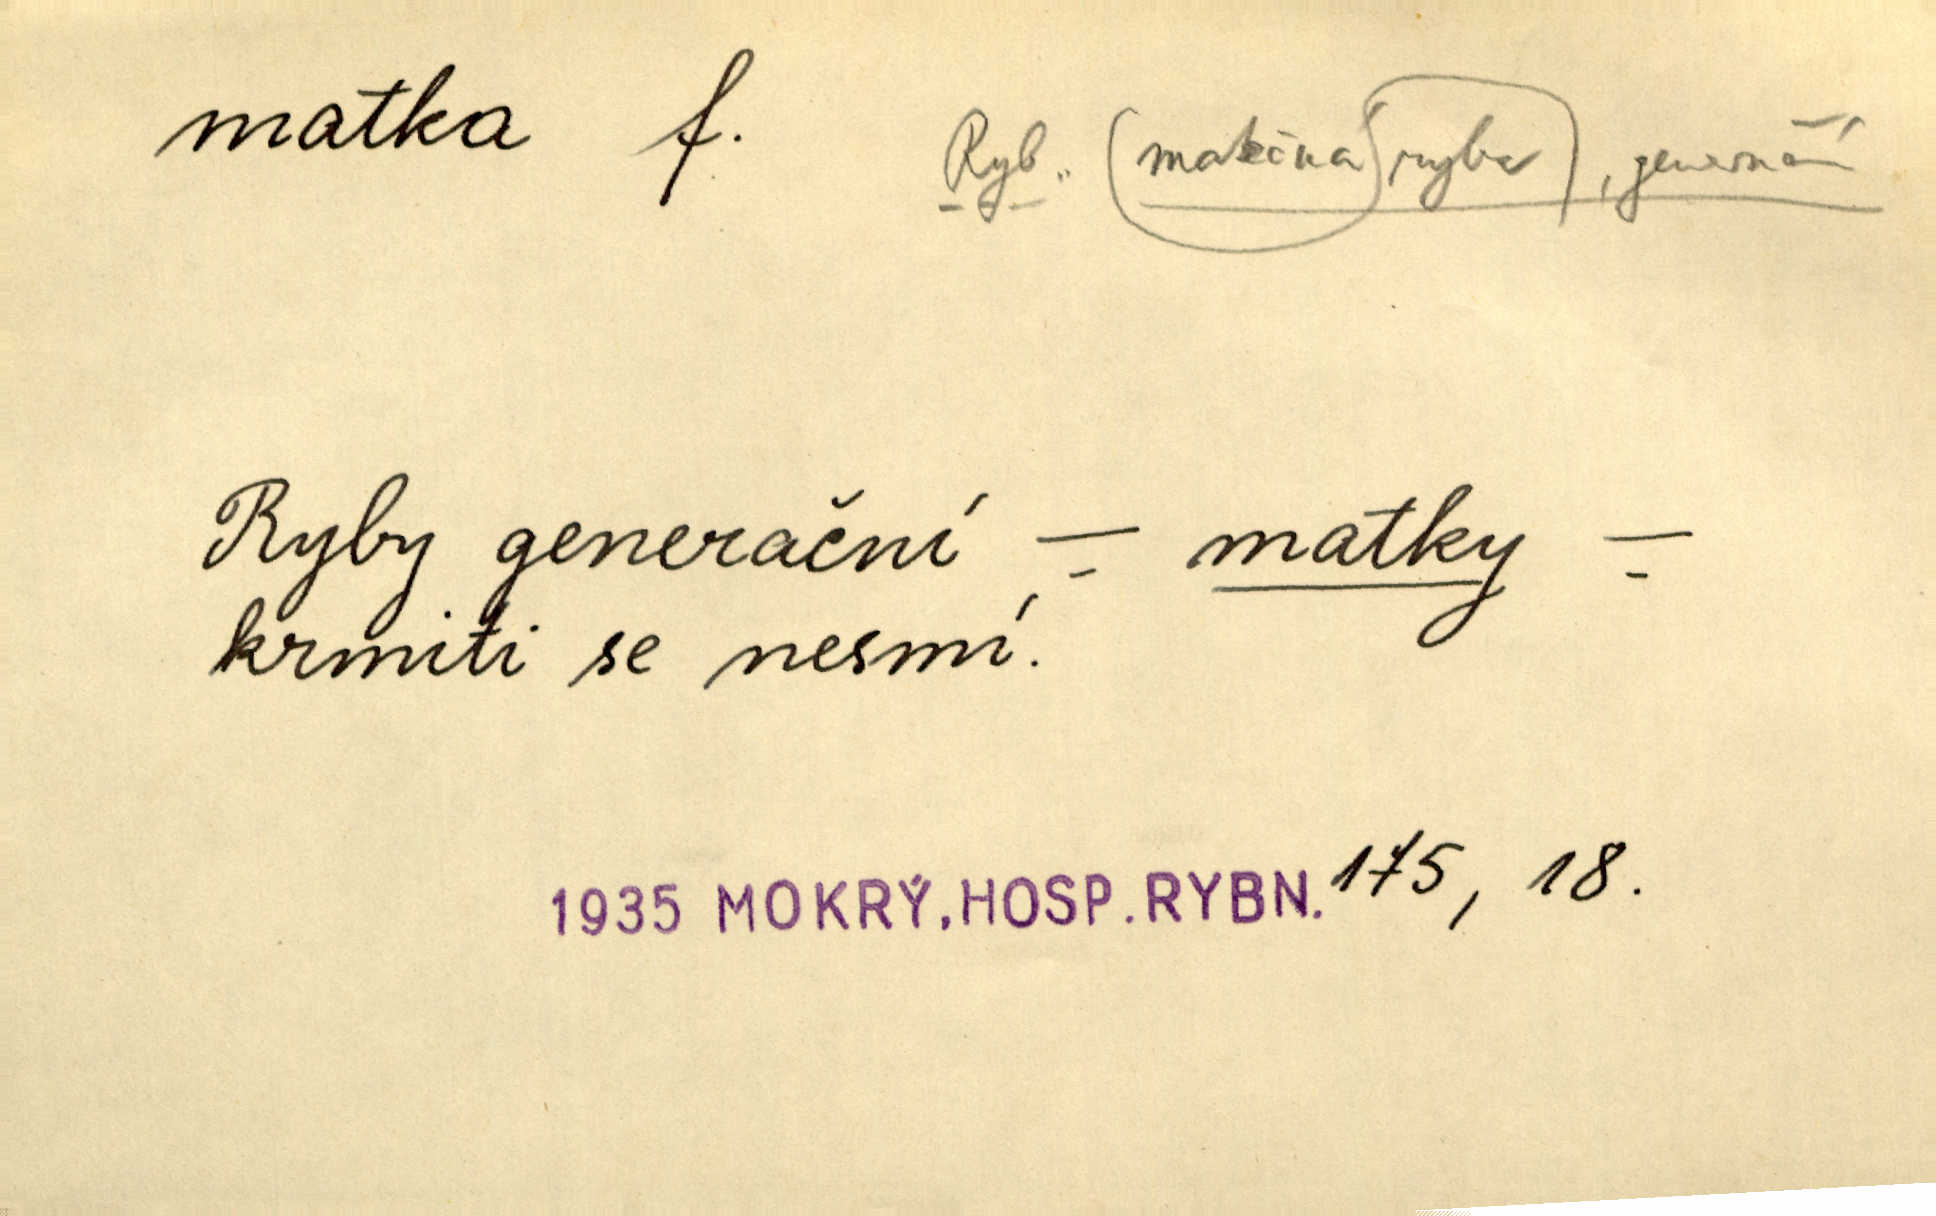 matka f. Ryb. (matčina ryba), generační
Ryby generační — matky —
krmiti se nesmí.
1935 MOKRÝ, HOSP. RYBN. 175, 18.